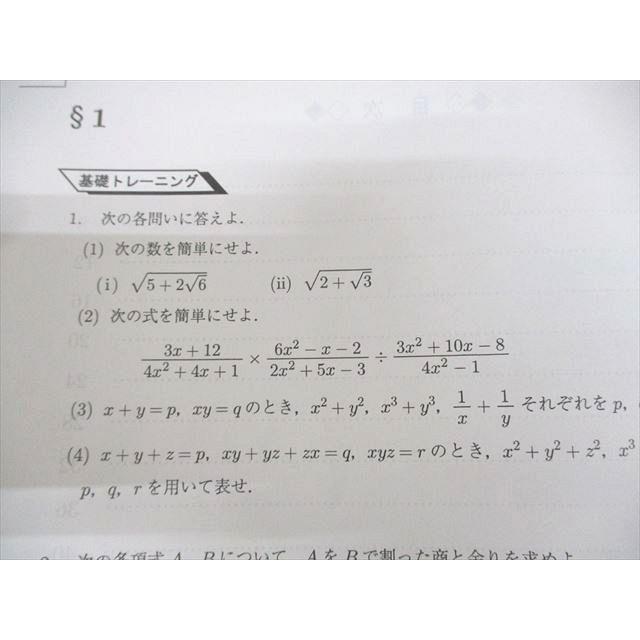 §1
基礎トレーニング
1. 次の各問いに答えよ.
(1) 次の数を簡単にせよ.
(i) √(5+2√6) (ii) √(2+√3)
(2) 次の式を簡単にせよ.
(3x+12)/(4x²+4x+1) × (6x²−x−2)/(2x²+5x−3) ÷ (3x²+10x−8)/(4x²−1)
(3) x+y=p, xy=q のとき, x²+y², x³+y³, 1/x + 1/y それぞれを p,
(4) x+y+z=p, xy+yz+zx=q, xyz=r のとき, x²+y²+z², x³
p, q, r を用いて表せ.
次の各項式 A, B について, A を B で割った商と余りを求めよ